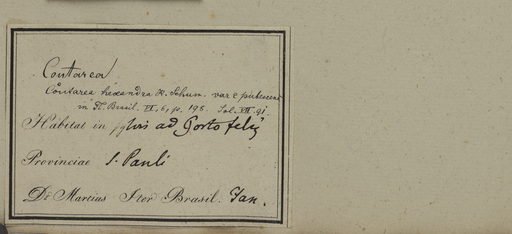 Coutarea
Coutarea hexandra K. Schum. var c pubescens
in Fl. Brasil. VI, 6, p. 198.
Habitat in sylvis ad Porto feliz
Provinciae S. Pauli
Dr. Martius Iter Brasil. Jan.